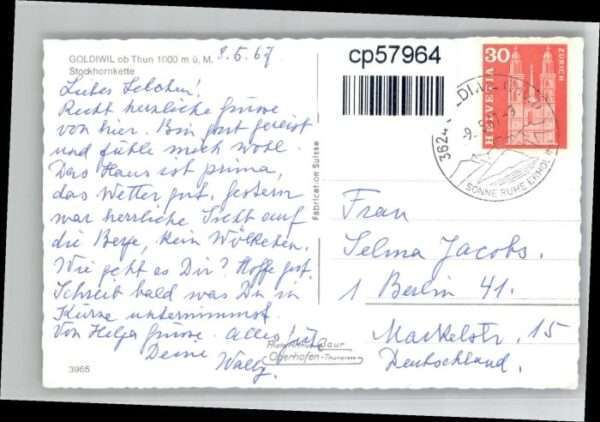 GOLDIWIL ob Thun 1000 m ü. M.
Stockhornkette
8.5.67
Liebes Selchen!
Recht herzliche Grüsse
von hier. Bin gut gereist
und fühle mich wohl.
Das Haus ist prima,
das Wetter gut, gestern
war herrliche Sicht auf
die Berge, kein Wölkchen.
Wie geht es Dir? Hoffe gut.
Schreib bald was Du in
Kürze unternimmst.
Von Helga Grüsse. Alles Gute
Deine
Wally.
3965
Fabrication Suisse
cp57964
30
HELVETIA
ZÜRICH
3624 GOLDIWIL
-9.5.67-
SONNE RUHE ERHOL
Frau
Selma Jacobs.
1 Berlin 41.
Markelstr. 15
Deutschland.
Baur
Oberhofen-Thunersee